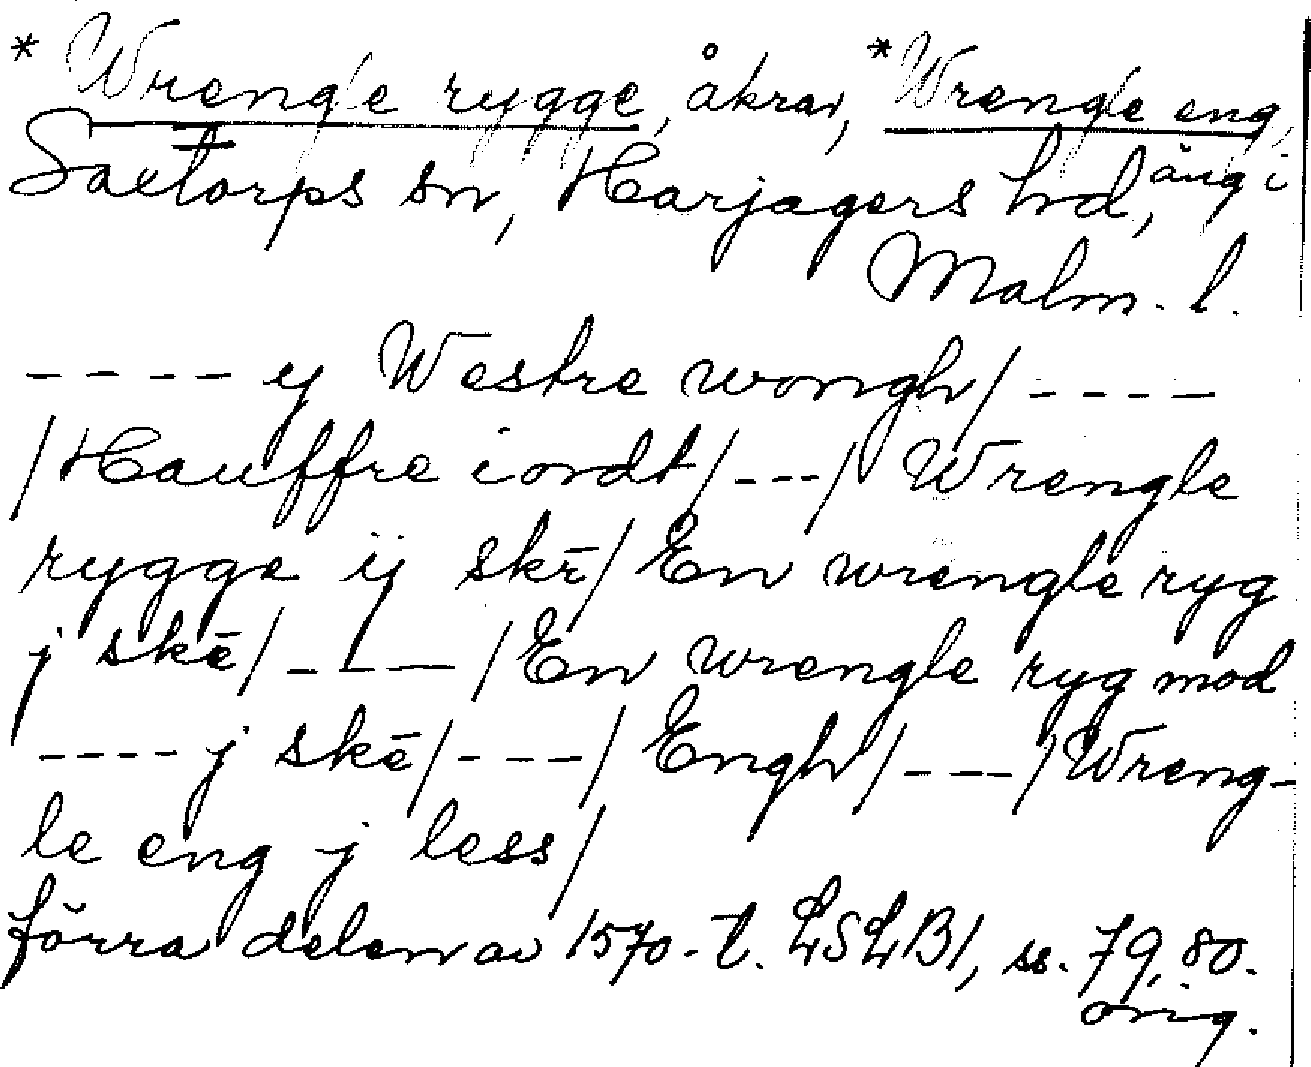 * Wrengle rygge, åkrar, *Wrengle eng,
äng i
Saxtorps sn, Harjagers hd,
Malm. l.
---- y Westre wongh/ ----
/Hauffre iordt/ --- / Wrengle
rygge ij skē/ En wrengle ryg
j skē/ ---- /En wrengle ryg mod
---- j skē/ --- / Engh/ --- /Wreng-
le eng j less/
förra delen av 1570-t. LSLB1, ss. 79, 80.
orig.